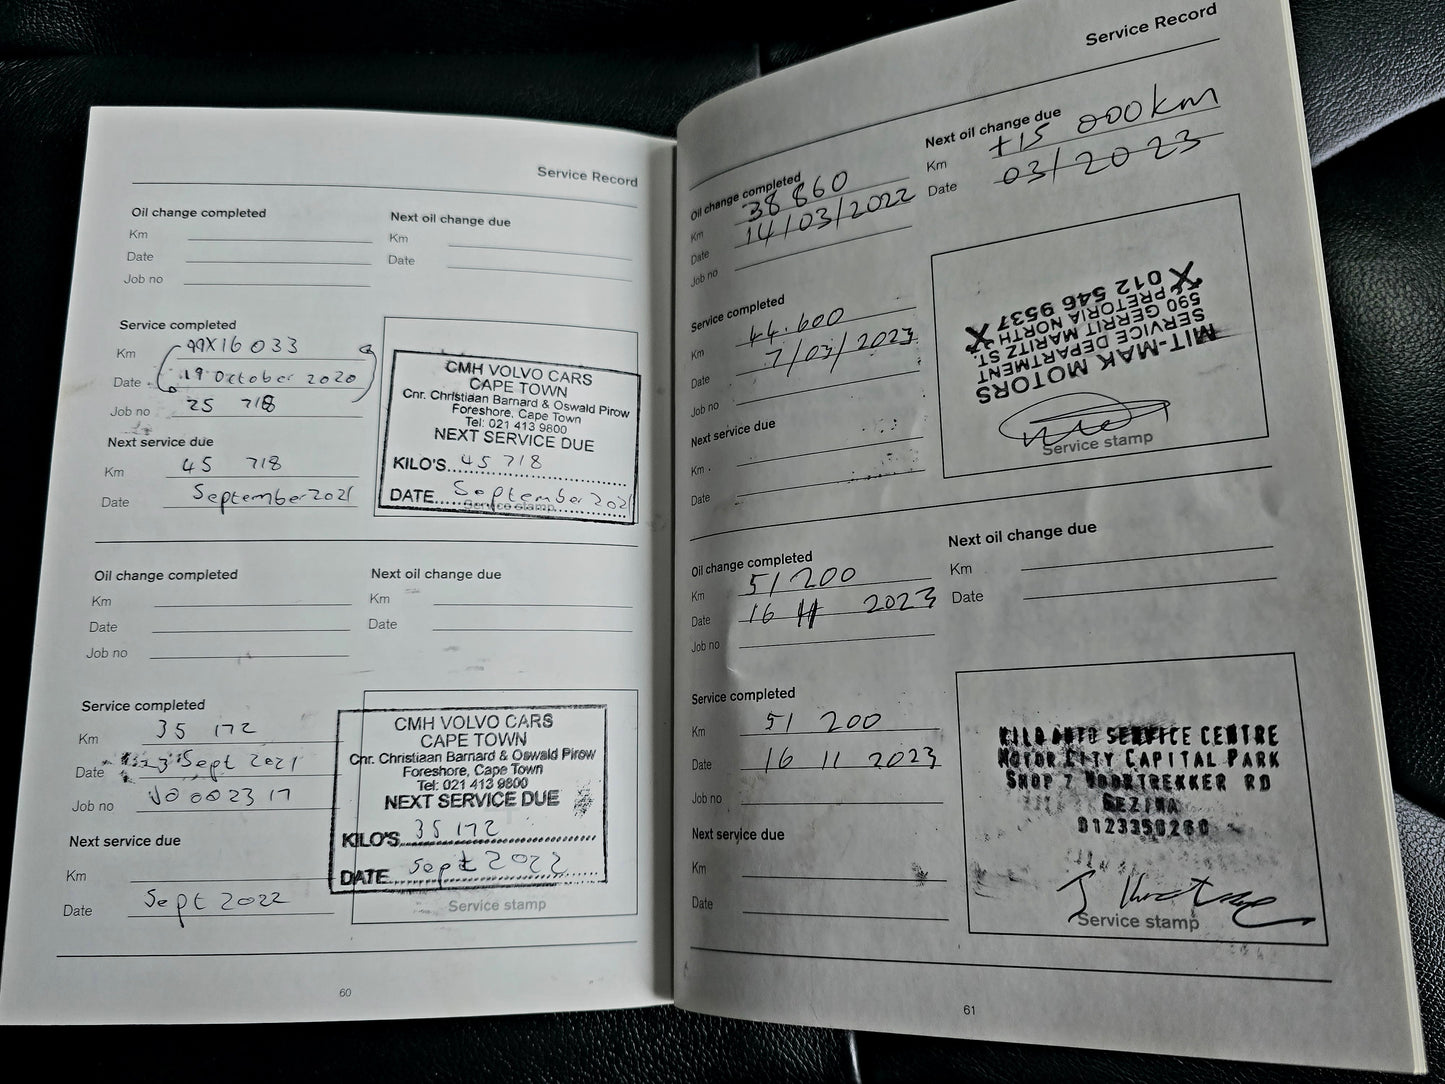 Service Record
Oil change completed
Next oil change due
Km
Km
Date
Date
Job no
Service completed
Km 16033
Date 19 October 2020
Job no 25 718
Next service due
Km 45 718
Date September 2021
CMH VOLVO CARS
CAPE TOWN
Cnr. Christiaan Barnard & Oswald Pirow
Foreshore, Cape Town
Tel: 021 413 9800
NEXT SERVICE DUE
KILO'S 45 718
DATE September 2021
Service stamp
Oil change completed
Next oil change due
Km
Km
Date
Date
Job no
Service completed
Km 35 172
Date Sept 2021
Job no
Next service due
Km
Date Sept 2022
CMH VOLVO CARS
CAPE TOWN
Cnr. Christiaan Barnard & Oswald Pirow
Foreshore, Cape Town
Tel: 021 413 9800
NEXT SERVICE DUE
KILO'S 35 172
DATE Sept 2022
Service stamp
60
Service Record
Oil change completed
Km 38 860
Date 14/03/2022
Job no
Next oil change due
Km +15 000km
Date 03/2023
Service completed
Km 44.600
Date 7/03/2023
Job no
Next service due
Km
Date
MIT-MAK MOTORS
SERVICE DEPARTMENT
590 GERRIT MARITZ ST.
PRETORIA NORTH
X 012 546 9537 X
Service stamp
Oil change completed
Km 51 200
Date 16 11 2023
Job no
Next oil change due
Km
Date
Service completed
Km 51 200
Date 16 11 2023
Job no
Next service due
Km
Date
AUTO SERVICE CENTRE
MOTOR CITY CAPITAL PARK
SHOP 7 VOORTREKKER RD
GEZINA
0123350260
Service stamp
61